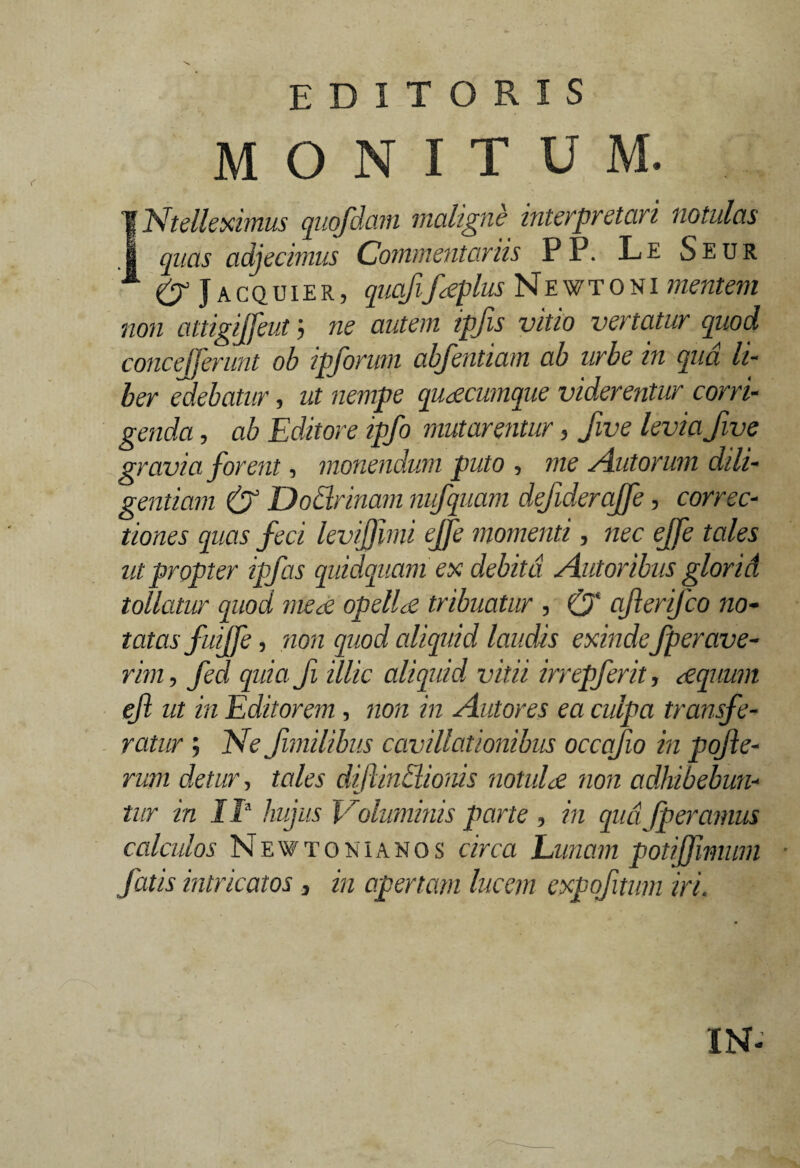 EDITORIS
MONITUM.
INtelleximus quoſdam malignè interpretari notulas
quas adjecimus Commentariis PP. LE SEUR
& JACQUIER, quaſi ſæplus NEWTONI mentem
non attigiſſeut; ne autem ipſis vitio vertatur quod
conceſſerunt ob ipſorum abſentiam ab urbe in quâ li-
ber edebatur, ut nempe quæcumque viderentur corri-
genda, ab Editore ipſo mutarentur, ſive levia ſive
gravia forent, monendum puto, me Autorum dili-
gentiam & Doctrinam nuſquam deſideraſſe, correc-
tiones quas feci leviſſimi eſſe momenti, nec eſſe tales
ut propter ipſas quidquam ex debitâ Autoribus gloriâ
tollatur quod meæ opellæ tribuatur, & aſteriſco no-
tatas fuiſſe, non quod aliquid laudis exinde ſperave-
rim, ſed quia ſi illic aliquid vitii irrepſerit, æquum
eſt ut in Editorem, non in Autores ea culpa transfe-
ratur; Ne ſimilibus cavillationibus occaſio in poſte-
rum detur, tales diſtinctionis notulæ non adhibebun-
tur in IIª hujus Voluminis parte, in quâ ſperamus
calculos NEWTONIANOS circa Lunam potiſſimum
ſatis intricatos, in apertam lucem expoſitum iri.
IN-